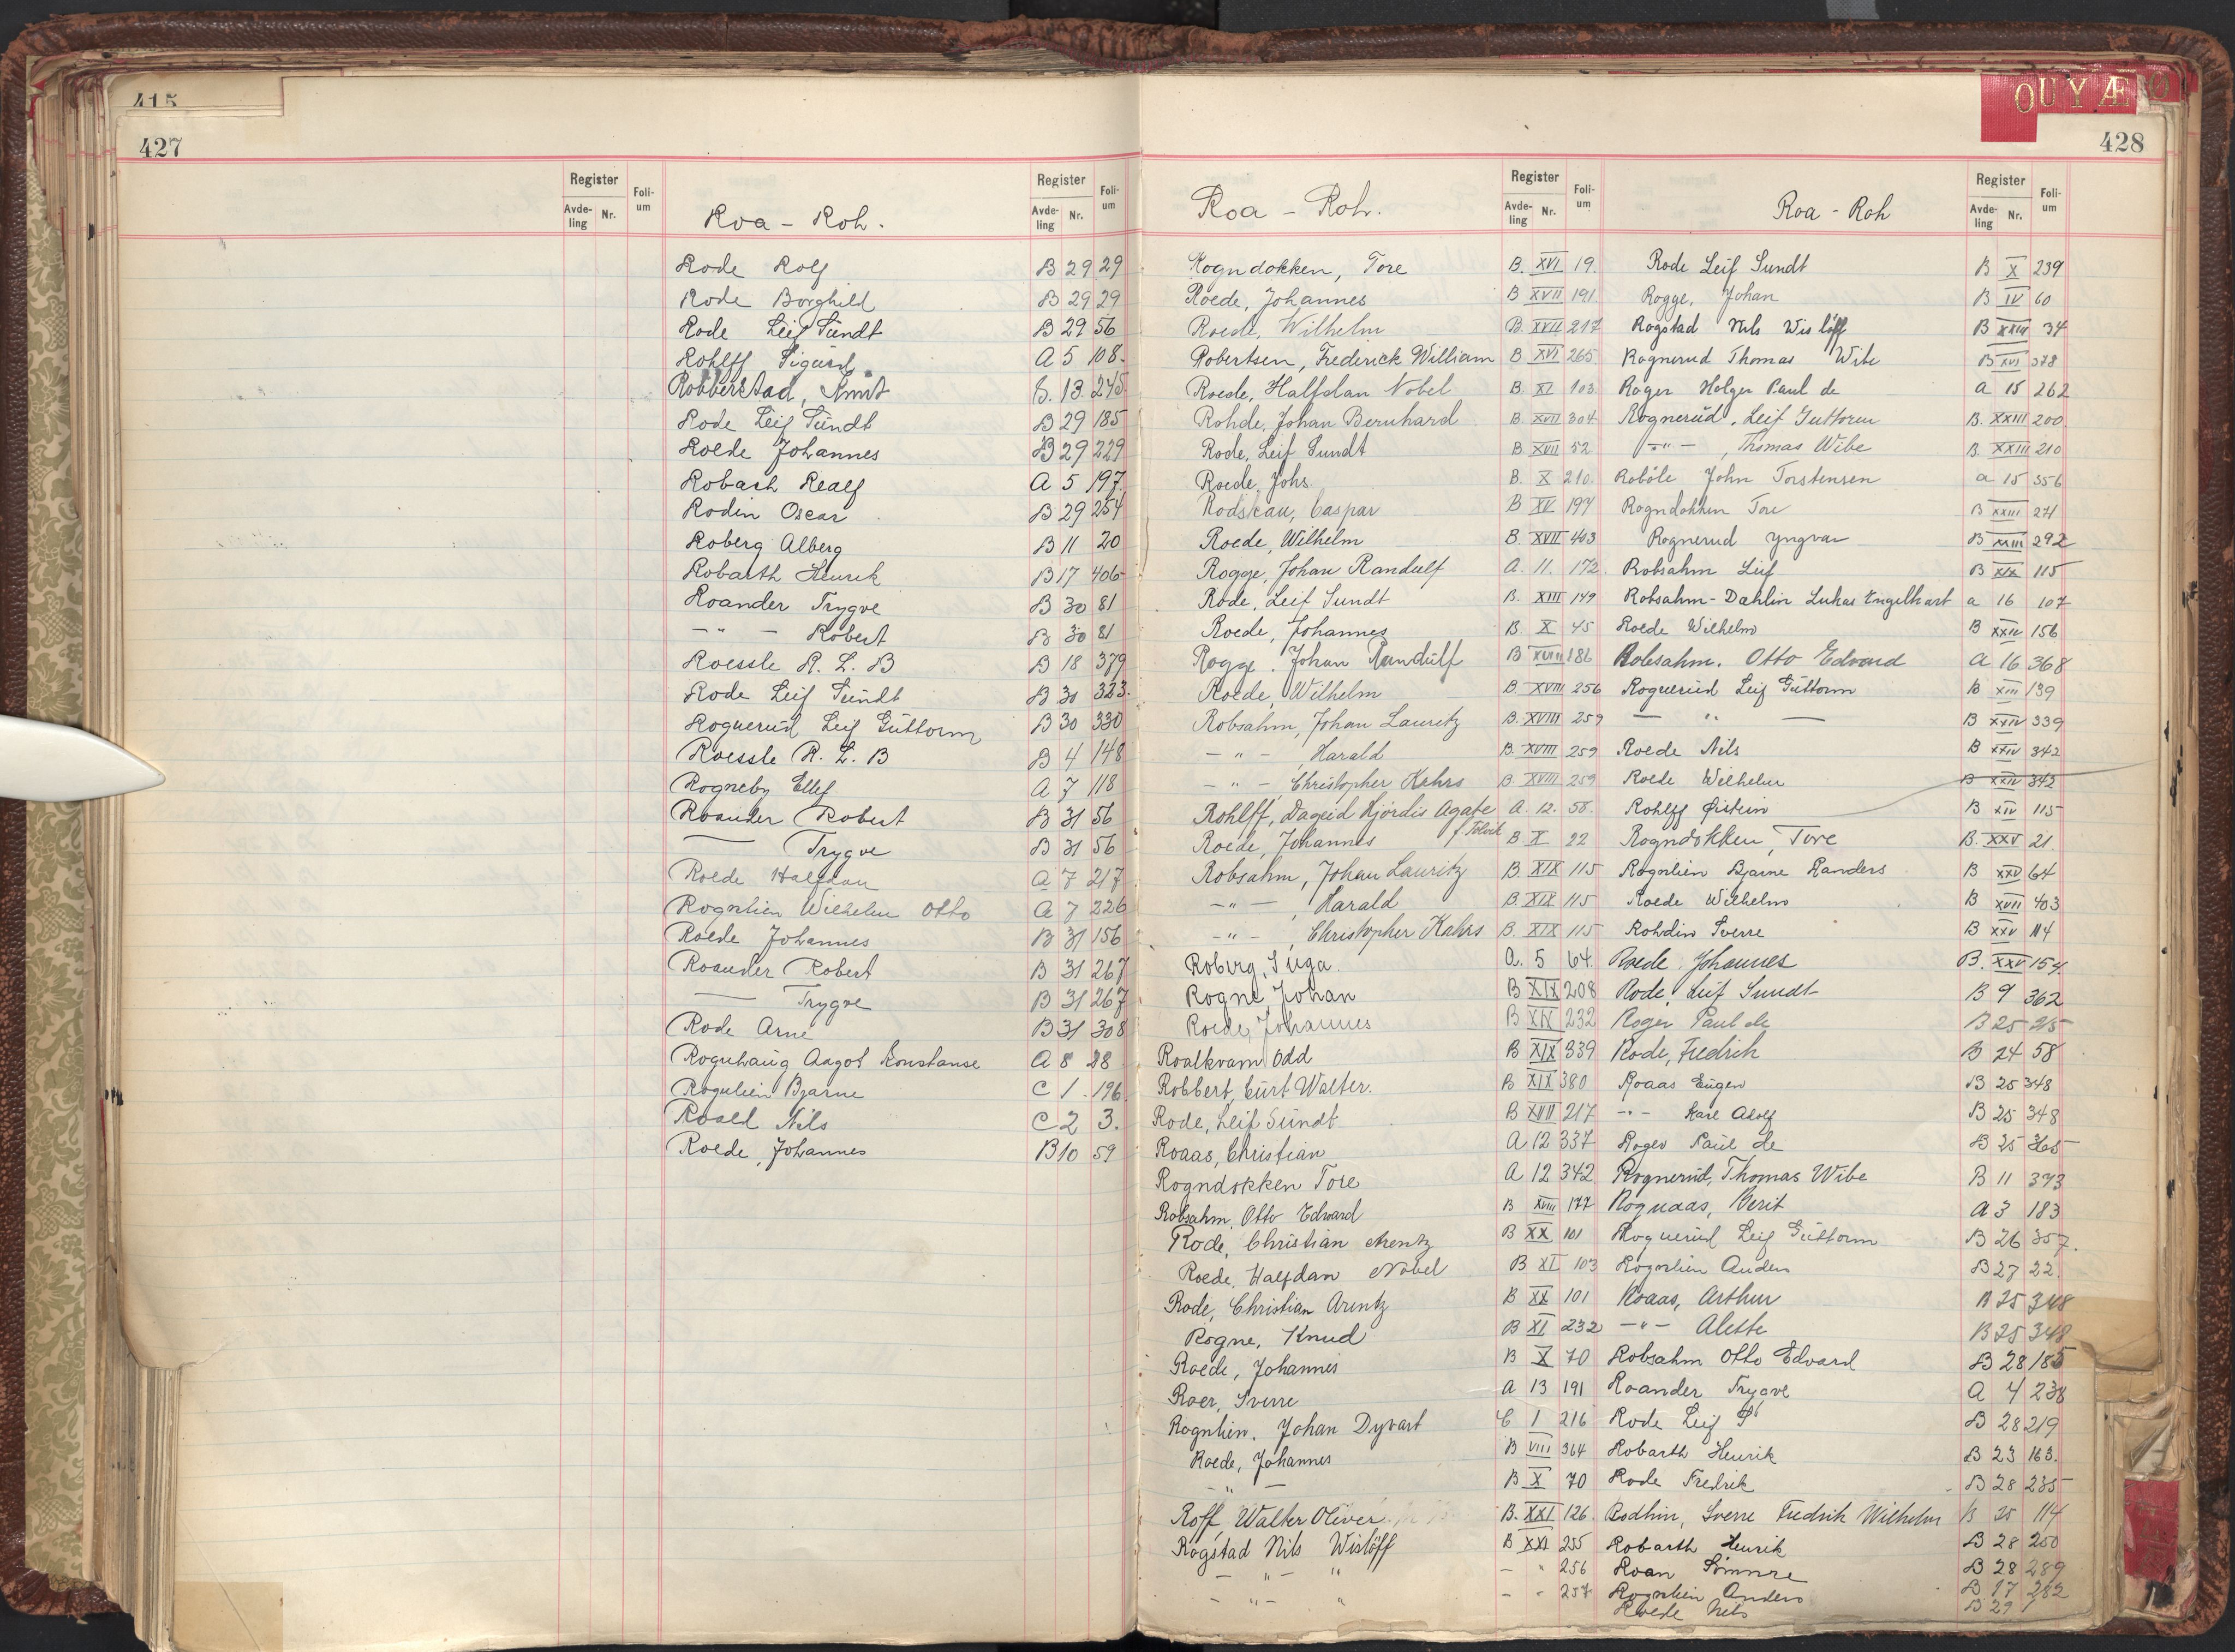 415
427
Register Foli-um Register Foli-um
Avde-ling Nr. Avde-ling Nr.
Roa - Roh.
Rode Rolf B 29 29
Rode Borghild B 29 29
Rode Leif Sundt B 29 56
Rohlff Sigurd A 5 108.
Robberstad, Knut B. 13 245
Rode Leif Sundt B 29 185
Roede Johannes B 29 229
Robach Realf A 5 197
Rodin Oscar B 29 254
Roberg Alberg B 11 20
Robarth Henrik B 17 406
Roander Trygve B 30 81
- " - Robert B 30 81
Roessle R. L. B B 18 379
Rode Leif Sundt B 30 323.
Rognerud Leif Guttorm B 30 330
Roessle R. L. B B 4 148
Rogneby Ellef A 7 118
Roander Robert B 31 56
— Trygve B 31 56
Roede Halfdan A 7 217
Rognlien Wilhelm Otto A 7 226
Roede Johannes B 31 156
Roander Robert B 31 267
— Trygve B 31 267
Rode Arne B 31 308
Rognhaug Aagot Konstanse A 8 28
Rognlien Bjarne C 1 196
Roald Nils C 2 3.
Roede, Johannes B 10 59
OUYÆØ
428
Roa - Roh. Register Foli-um
Avde-ling Nr.
Rogndokken, Tore B. XVI 19.
Roede, Johannes B XVII 191
Roede, Wilhelm B. XVII 217
Robertsen, Frederick William B XVI 265
Roede, Halfdan Nobel B. XI 103
Rohde, Johan Bernhard B XVII 304
Rode, Leif Sundt B. XVII 52
Roede, Johs B. X 210.
Rodskau, Caspar B XV 197
Roede, Wilhelm B. XVII 403
Rogge, Johan Randulf A. 11. 172.
Rode, Leif Sundt B. XIII 149
Roede, Johannes B. X 45
Rogge, Johan Randulf B XVIII 186
Roede, Wilhelm B. XVIII 256
Robsahm, Johan Lauritz B. XVIII 259
- " - , Harald B. XVIII 259
- " - , Christopher Kahrs B. XVIII 259
Rohlff, Dageid Hjørdis Agate A. 12. 58.
Roede, Johannes B X 22
Robsahm, Johan Lauritz B XIX 115
- " - , Harald B. XIX 115
- " - , Christopher Kahrs B. XIX 115
Roberg, Inga. A. 5 64.
Rogne Johan B XIX 208
Roede, Johannes B XIX 232
Roalkvam Odd B XIX 339
Robbert, Curt Walter. B XIX 380
Rode, Leif Sundt B XVII 217
Roaas, Christian A 12 337
Rogndokken Tore A 12 342
Robsahm, Otto Edvard B XVIII 177
Rode, Christian Arentz B XX 101
Roede, Halfdan Nobel B XI 103
Rode, Christian Arentz B XX 101
Rogne, Knud B XI 232
Roede, Johannes B X 70
Roer, Sverre A 13 191
Rognlien, Johan Dyvart C 1 216
Roede, Johannes B VIII 364
- " - B X 70
Roff, Walter Oliver B. XXI 126.
Rogstad Nils Wisløff B XXI 255
- " - " - " 256
- " - " - " 257
Roa - Roh Register Foli-um
Avde-ling Nr.
Rode Leif Sundt B X 239
Rogge, Johan B IV 60
Rogstad Nils Wisløff B XXIII 34
Rognerud Thomas Wibe B XVI 378
Roger Holger Paul de a 15 262
Rognerud, Leif Guttorm B. XXIII 200
- " - , Thomas Wibe B. XXIII 210
Robøle John Torstensen a 15 356
Rogndokken Tore B XXIII 271
Rognerud Yngvar B XXIII 292
Robsahm Leif B XIX 115
Robsahm-Dæhlin Lukas Engelhart a 16 107
Roede Wilhelm B XXIV 156
Robsahm. Otto Edvard a 16 368
Rognerud Leif Guttorm B XIII 139
— " — B XXIV 339
Roede Nils B XXIV 342
Roede Wilhelm B XXIV 342
Rohlff Øistein B XIV 115
Rogndokken, Tore B. XXV 21
Rognlien Bjarne Randers B XXV 64
Roede Wilhelm B XVII 403
Rohdin Sverre B XXV 114
Roede Johannes B. XXV 154
Rode, Leif Sundt B 9 362
Roger Paul de B 25 215
Rode, Fredrik B 24 58
Roaas Eugen B 25 348
- " - Karl Adolf B 25 348
Roger Paul de B 25 365
Rognerud, Thomas Wibe B 11 393
Rognaas, Berit A 3 183
Rognerud Leif Guttorm B 26 357.
Rognlien Anders B 27 22.
Roaas, Arthur B 25 348
- " - Alette B 25 348
Robsahm Otto Edvard B 28 185
Roander Trygve A 4 238
Rode Leif S B 28 219
Robarth Henrik B 23 163.
Rode Fredrik B 28 235
Rodhin, Sverre Fredrik Wilhelm B 25 114
Robarth Henrik B 28 250
Roan B 28 289
Rognlien Anders B 17 282
Roede Nils B 29 1